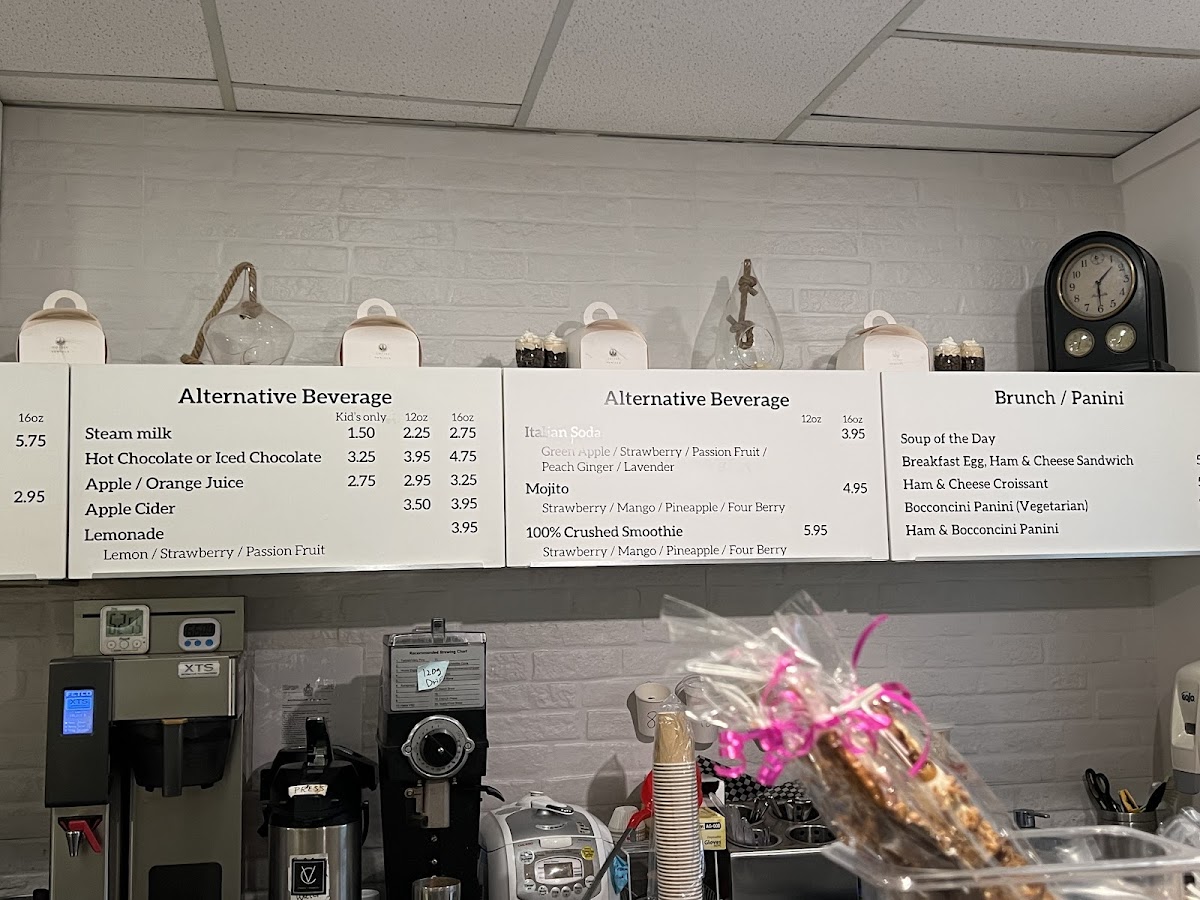 16oz
5.75
2.95
Alternative Beverage
Kid's only 12oz 16oz
Steam milk 1.50 2.25 2.75
Hot Chocolate or Iced Chocolate 3.25 3.95 4.75
Apple / Orange Juice 2.75 2.95 3.25
Apple Cider 3.50 3.95
Lemonade 3.95
Lemon / Strawberry / Passion Fruit
Alternative Beverage
12oz 16oz
Italian Soda 3.95
Green Apple / Strawberry / Passion Fruit /
Peach Ginger / Lavender
Mojito 4.95
Strawberry / Mango / Pineapple / Four Berry
100% Crushed Smoothie 5.95
Strawberry / Mango / Pineapple / Four Berry
Brunch / Panini
Soup of the Day
Breakfast Egg, Ham & Cheese Sandwich
Ham & Cheese Croissant
Bocconcini Panini (Vegetarian)
Ham & Bocconcini Panini
XTS
FETCO
XTS
Recommended Brewing Chart
120g
PRESS
Gloves
GOJO